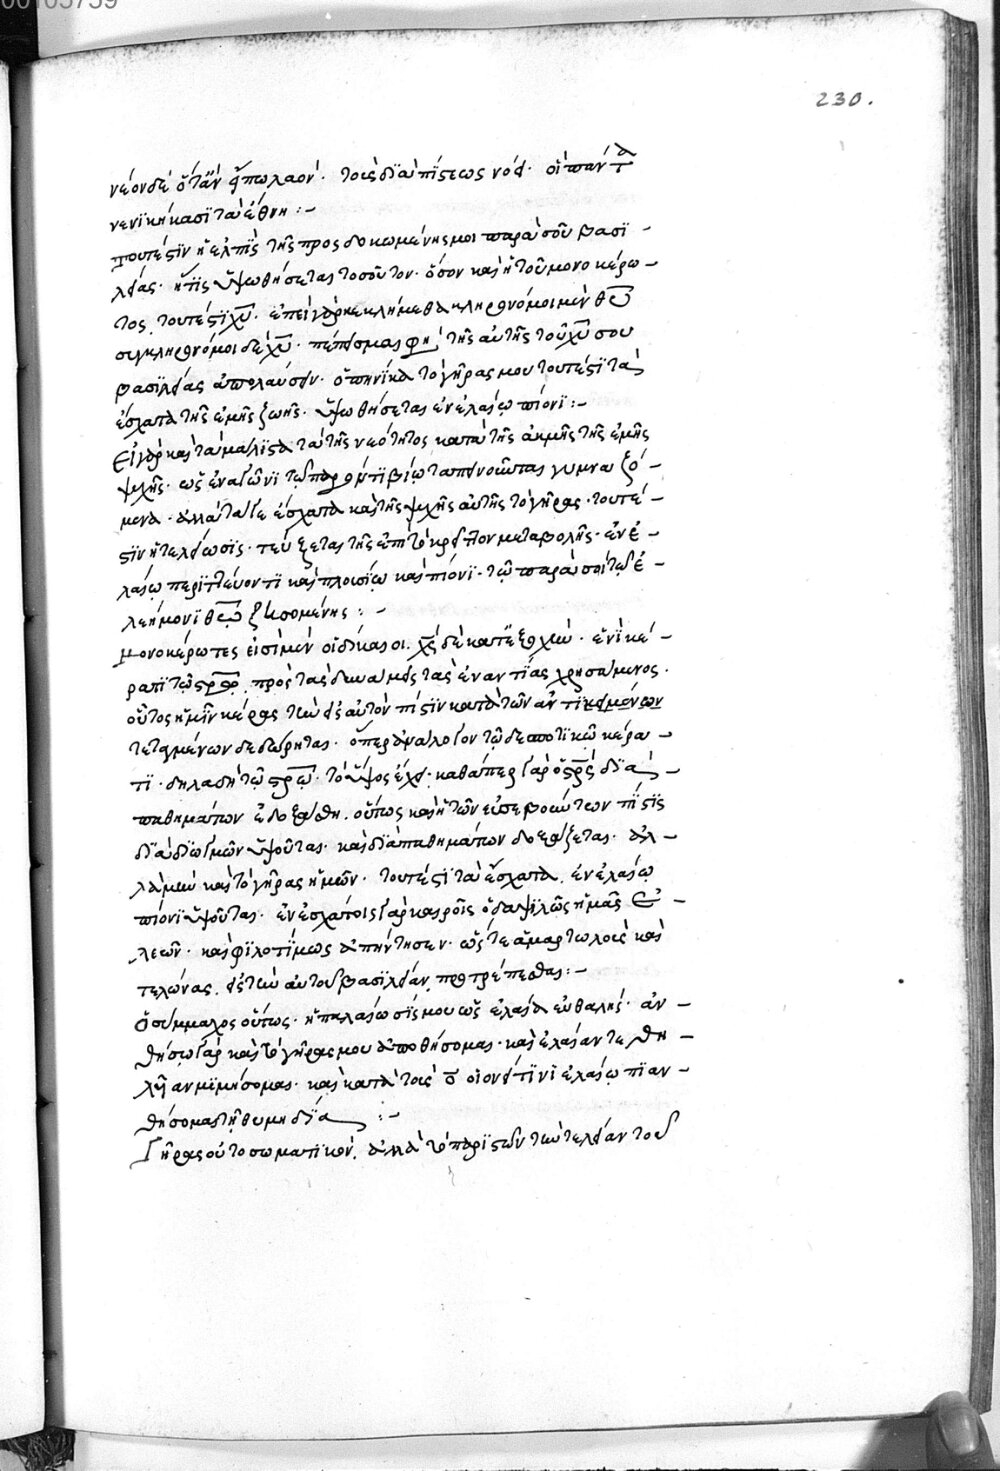 00103759
230.
νέον δὲ ὅταν εἴπω λαὸν· τοὺς διὰ πίστεως νόει· οἳ πάντα τὰ
νενικήκασι τὰ ἔθνη :-
τουτέστιν ἡ ἐλπὶς τῆς προσδοκωμένης μοι παρὰ σοῦ βασι-
λείας· ἥτις ὑψωθήσεται τοσοῦτον· ὅσον καὶ ἡ τοῦ μονοκέρω-
τος, τουτέστι χυ· ἐπεὶ γὰρ κεκλήμεθα κληρονόμοι μὲν θυ
συγκληρονόμοι δὲ χυ· πέπεισμαι φη τῆς αὐτῆς τοῦ χυ σου
βασιλείας ἀπολαύσειν· ὁπηνίκα τὸ γῆρας μου τουτέστι τὰ
ἔσχατα τῆς ἐμῆς ζωῆς· ὑψωθήσεται ἐν ἐλαίῳ πίονι :-
Εἰ γὰρ καὶ τὰ μάλιστα τὰ τῆς νεότητος κατὰ τῆς ἀκμῆς τῆς ἐμῆς
ψυχῆς· ὡς ἐν ἀγῶνι τῷ παρόντι βίῳ ταπεινοῦνται γυμναζό-
μενα· ἀλλὰ τά γε ἔσχατα καὶ τῆς ψυχῆς αὐτῆς τὸ γῆρας· τουτέ-
στιν ἡ τελείωσις· τεύξεται τῆς ἐπὶ τὸ κρεῖττον μεταβολῆς· ἐν ἐ-
λαίῳ περιττεύοντι καὶ πλουσίῳ καὶ πίονι· τῷ παρὰ σοὶ τῷ ἐ-
λεήμονι θεῷ :-
μονοκέρωτες εἰσὶ μὲν οἱ δίκαιοι· χς δὲ κατ' ἐξοχὴν· ἑνὶ κέ-
ρατι τῷ στρῷ πρὸς τὰς δυνάμεις τὰς ἐναντίας χρησάμενος·
οὗτος ἡμῖν κέρας τὴν εἰς αὐτὸν πίστιν κατὰ τῶν ἀντικειμένων
τεταγμένων δεδώρηται· ὅπερ ἀνάλογον τῷ δεσποτικῷ κέρα-
τι· δηλαδὴ τῷ στρῷ· τὸ ὕψος ἔχει· καθάπερ γὰρ ὁ στρὸς διὰ -
παθημάτων ἐδοξάσθη· οὕτως καὶ ἡ τῶν εὐσεβούντων πίστις
διὰ διωγμῶν ὑψοῦται· καὶ διὰ παθημάτων δοξάζεται· ἀλ-
λὰ μὴν καὶ τὸ γῆρας ἡμῶν· τουτέστι τὰ ἔσχατα, ἐν ἐλαίῳ
πίονι ὑψοῦται· ἐν ἐσχάτοις γὰρ καιροῖς ὁ δαψιλῶς ἡμᾶς ἐ-
λεῶν· καὶ φιλοτίμως ἀπήντησεν· ὥστε ἁμαρτωλοὺς καὶ
τελώνας, εἰς τὴν αὐτοῦ βασιλείαν, προτρέπεσθαι :-
ὁ σύμμαχος οὕτως· ἡ παλαίωσίς μου ὡς ἐλαία εὐθαλής· ἀν-
θήσω γὰρ καὶ τὸ γῆρας μου ἀποθήσομαι· καὶ ἐλαίαν τε θη-
λὴν μιμήσομαι· καὶ κατὰ τοὺς ο οἱονεί τινι ἐλαίῳ πιαν-
θήσομαι τῇ θυμηδίᾳ :-
Γῆρας οὐ τὸ σωματικὸν, ἀλλὰ τὸ παριστῶν τὴν τελείαν τοῦ